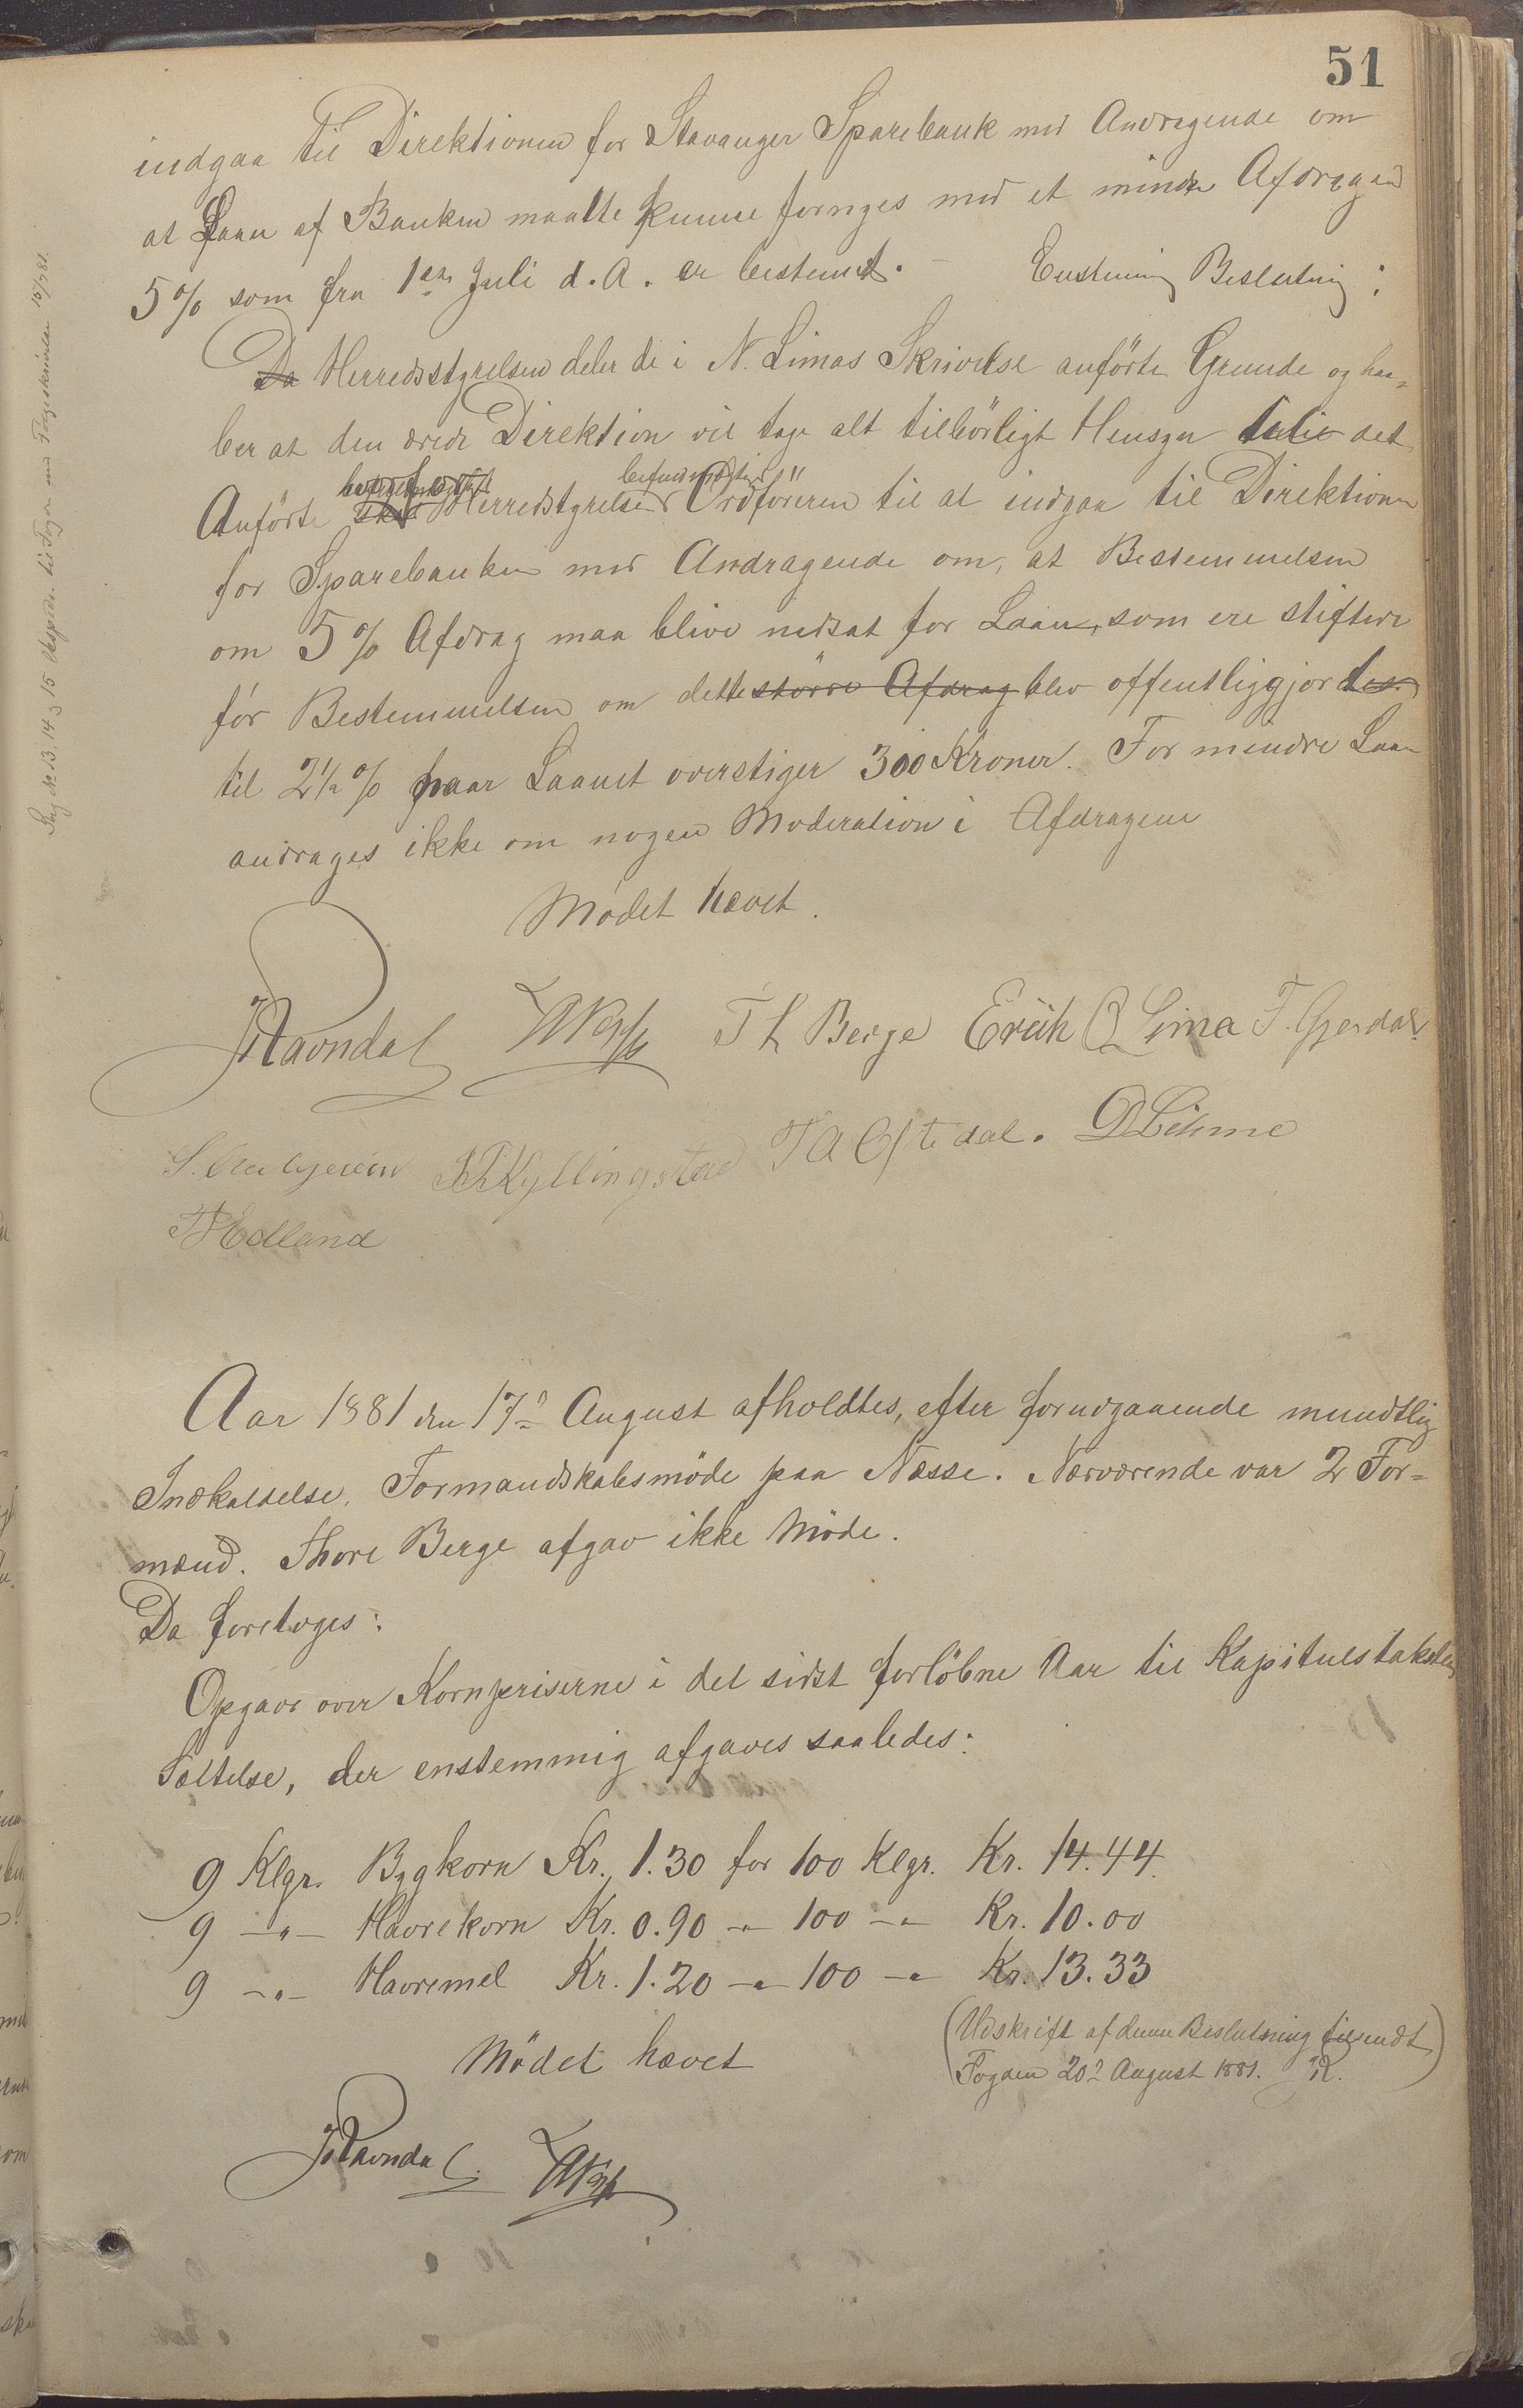 51
indgaa til Direktionen for Stavanger Sparebank med Andragende om
at Laan af Banken maatte kunne fornyes med et mindre Afdrag end
5% som fra 1ste Juli d. A. er bestemt. - Enstemmig Beslutning:
Da Herredsstyrelsen deler de i N. Limas Skrivelse anförte Grunde og haa-
ber at den ærede Direktion vil tage alt tilbörligt Hensyn til det
Anförte Herredstyrelsen befuldmægtiger Ordföreren til at indgaa til Direktionen
for Sparebanken med Andragende om, at Bestemmelsen
om 5% Afdrag maa blive nedsat for Laan, som ere stiftede
för Bestemmelsen om dette större Afdrag blev offentliggjordtes
til 2½% naar Laanet overstiger 300 Kroner. For mindre Laan
andrages ikke om nogen Moderation i Afdragene
Mödet hævet.
Ravndal Th Berge Erik O Lima T. Gjerdal.
S R Kyllingstad T A Oftedal. D Lihme
T Edland
Aar 1881 den 17de August afholdtes, efter forudgaaende mundtlig
Indkaldelse, Formandskabsmöde paa Næsse. Nærværende var 2 For-
mænd. Thore Berge afgav ikke Möde.
Da foretoges:
Opgave over Kornpriserne i det sidst forlöbne Aar til Kapitulstakstens
Sættelse, der enstemmig afgaves saaledes:
9 Klgr. Bygkorn Kr. 1.30 for 100 Klgr. Kr. 14.44.
9 -"- Havrekorn Kr. 0.90 -"- 100 -"- Kr. 10.00
9 -"- Havremel Kr. 1.20 -"- 100 -"- Kr. 13.33
(Udskrift af denne Beslutning tilsendt
Fogden 20de August 1881. R.)
Mödet hævet
Ravndal.
Sag No 13, 14 & 15 Exped. til Fogden med Fölgeskrivelse 15/7 81.